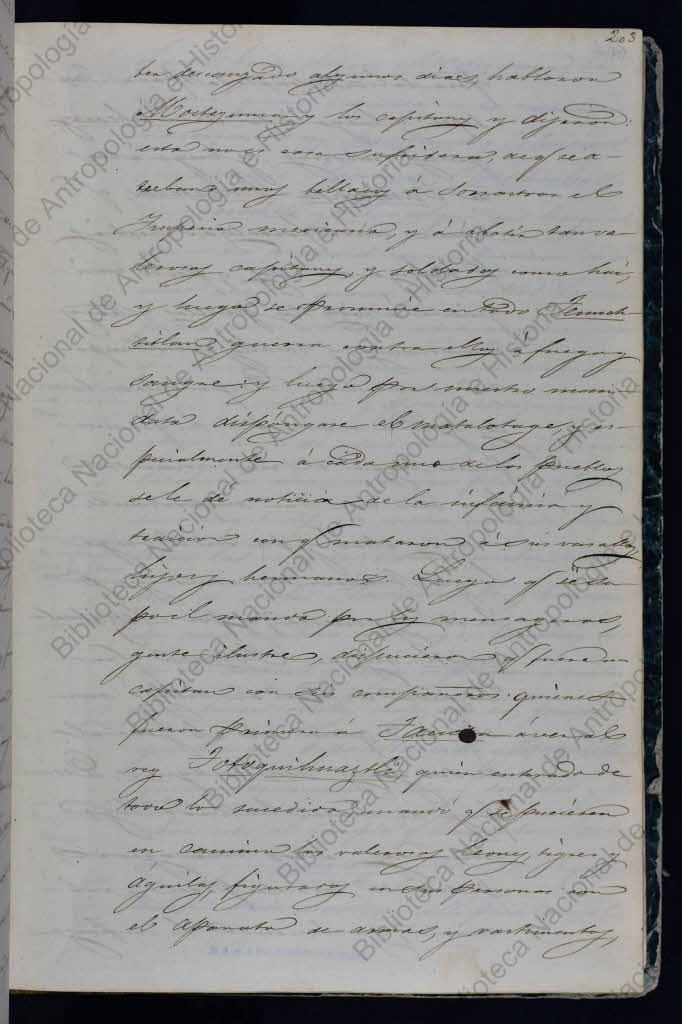 203
ber descanzado algunos dias, hablaron
Moctezuma y los capitanes y dijeron:
esta no es cosa sufridera, de q se a-
treban unos bellacos á sonrastrar el
Imperio mexicano, y á abatir tan va-
lerosos capitanes, y soldados como hai,
y luego se pronuncie en todo Tenuch-
titlan guerra contra ellos á fuego y
sangre: y luego por nuestro man-
dato dispongase el matalotage, y es-
pecialmente á cada uno de los pueblos
se le dé noticia de la infamia y
traicion con q mataron á sus vasallos
hijos y hermanos. Luego q
mensageros,
gente ilustre, dispucieron q fuera un
capitan con sus compañeros: quienes
fueron primero á Tacuba á ver al
rey Totoquihuaztli, quien enterado de
todo lo sucedido mandó q se pusiesen
en camino los valerosos leones, tigres y
águilas, figurados en sus personas con
el aparato de armas, y vastimentos,
Biblioteca Nacional de Antropología e Historia